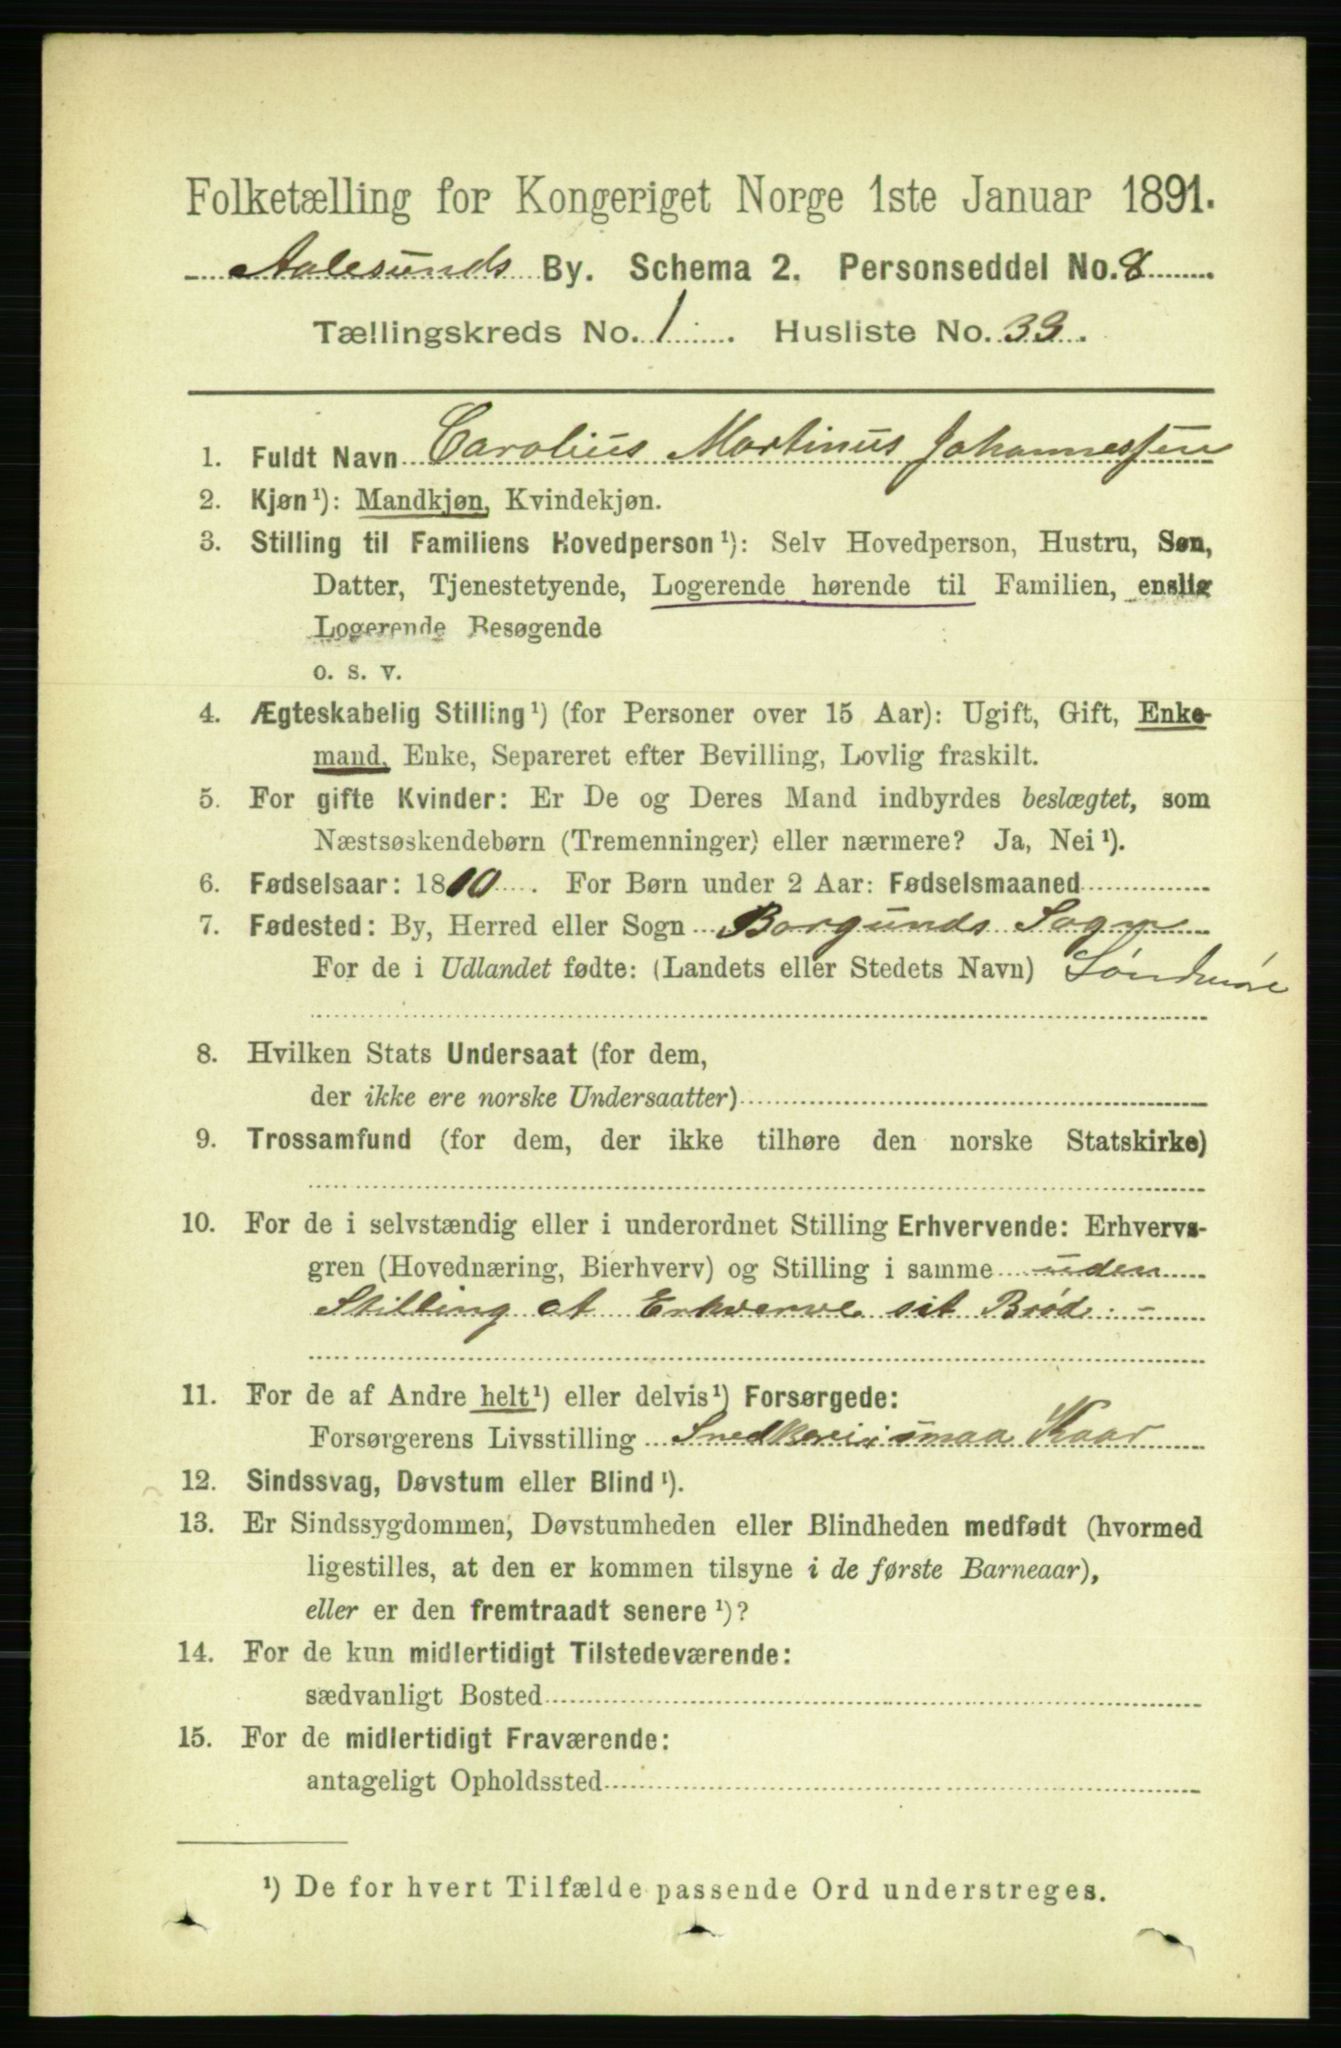 Folketælling for Kongeriget Norge 1ste Januar 1891.
Aalesunds By. Schema 2. Personseddel No. 8
Tællingskreds No. 1. Husliste No. 33.
1. Fuldt Navn Carolius Martinus Johannessen
2. Kjøn¹): Mandkjøn, Kvindekjøn.
3. Stilling til Familiens Hovedperson¹): Selv Hovedperson, Hustru, Søn,
Datter, Tjenestetyende, Logerende hørende til Familien, enslig
Logerende Besøgende
o. s. v.
4. Ægteskabelig Stilling¹) (for Personer over 15 Aar): Ugift, Gift, Enke-
mand, Enke, Separeret efter Bevilling, Lovlig fraskilt.
5. For gifte Kvinder: Er De og Deres Mand indbyrdes beslægtet, som
Næstsøskendebørn (Tremenninger) eller nærmere? Ja, Nei¹).
6. Fødselsaar: 1810. For Børn under 2 Aar: Fødselsmaaned
7. Fødested: By, Herred eller Sogn Borgunds Sogn
For de i Udlandet fødte: (Landets eller Stedets Navn) Søndmøre
8. Hvilken Stats Undersaat (for dem,
der ikke ere norske Undersaatter)
9. Trossamfund (for dem, der ikke tilhøre den norske Statskirke)
10. For de i selvstændig eller i underordnet Stilling Erhvervende: Erhvervs-
gren (Hovednæring, Bierhverv) og Stilling i samme uden
Stilling at Erhverve sit Brød. -
11. For de af Andre helt¹) eller delvis¹) Forsørgede:
Forsørgerens Livsstilling Snedker i smaa Kaar
12. Sindssvag, Døvstum eller Blind¹).
13. Er Sindssygdommen, Døvstumheden eller Blindheden medfødt (hvormed
ligestilles, at den er kommen tilsyne i de første Barneaar),
eller er den fremtraadt senere¹)?
14. For de kun midlertidigt Tilstedeværende:
sædvanligt Bosted
15. For de midlertidigt Fraværende:
antageligt Opholdssted
¹) De for hvert Tilfælde passende Ord understreges.